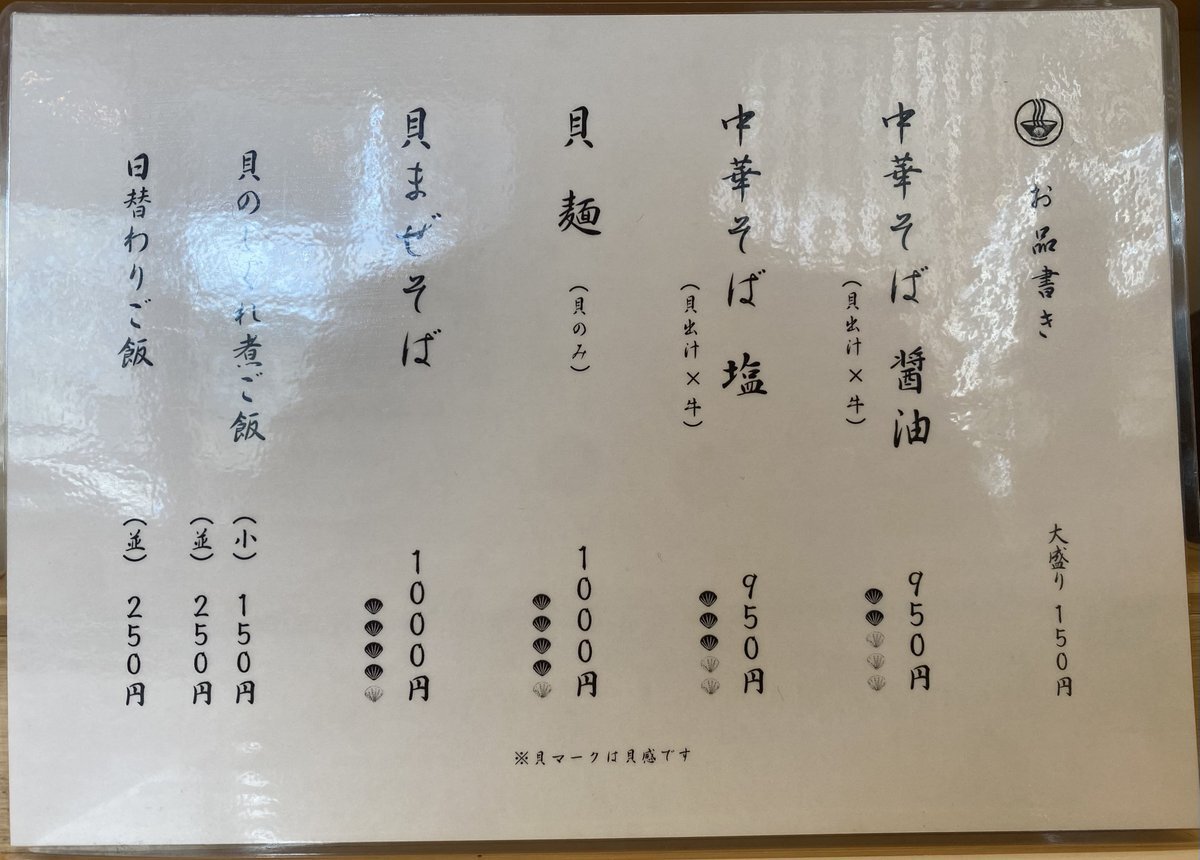 お品書き
大盛り 150円
中華そば 醤油
(貝出汁×牛)
950円
中華そば 塩
(貝出汁×牛)
950円
貝麺
(貝のみ)
1000円
貝まぜそば
1000円
貝のしぐれ煮ご飯
(小) 150円
(並) 250円
日替わりご飯
(並) 250円
※貝マークは貝感です